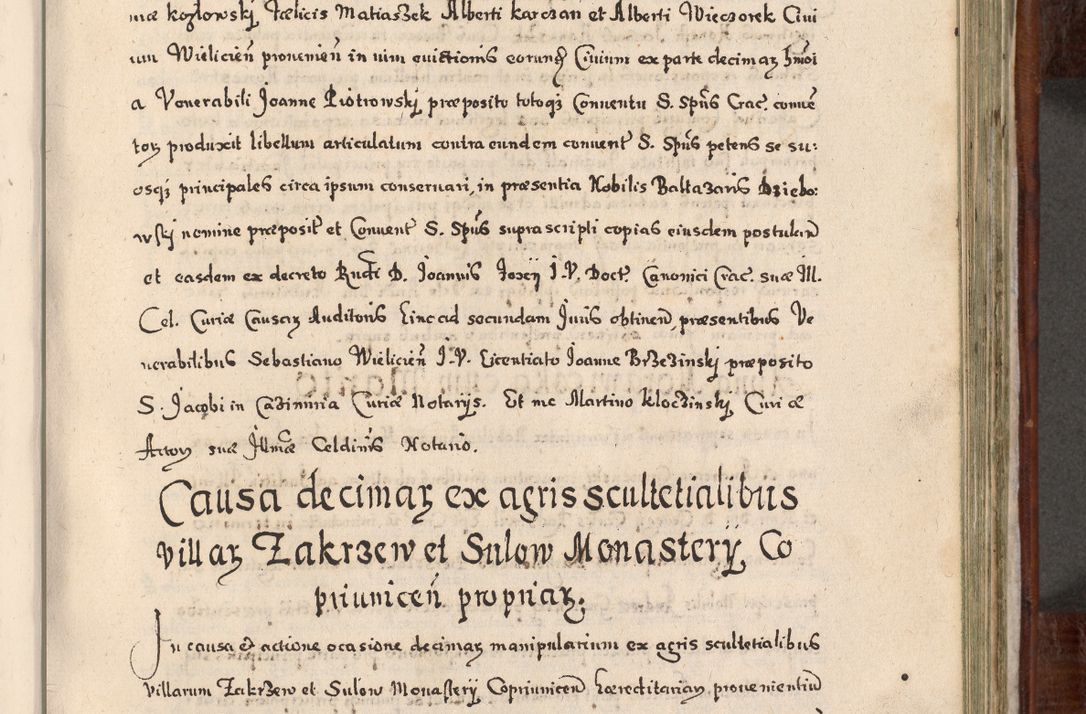 mæ kozłowskj Fælicis Matiaszek Alberti karczan et Alberti Wieczorek Civi
um Wielicień provenień in vim evictionis eorundꝫ Civium ex parte decimaꝝ hm̄oi
a Venerabili Joanne Piotrowskj præposito totoqꝫ Conventu S. Spũs Crac. conue
toꝝ produxit libellum articulatum contra eundem convent S. Spũs petens se su:
osqꝫ principales circa ipsum conservari, in præsentia Nobilis Baltazaris Dziebo:
wskj nomine præposit et Convent S. Spũs suprascripti copias eiusdem postulan
et easdem ex decreto Rndi D. Joannis Joxey J.V. Doct. Canonici Crac. suæ Ill.
Cel. Curiæ Causaꝝ Auditoris hinc ad secundam Juris obtinen, præsentibus Ve
nerabilibus Sebastiano Wielicień J.V. Licentiato Joanne Brzezinskj præposito
S. Jacobi in Cazimiria Curiæ Notarijs. Et me Martino kloczinskj Curiæ
Actoꝝ suæ Illmæ Celdinis Notario.
Causa decimaꝝ ex agris scultetialibus
villaꝝ Zakrzew et Sulow Monasterij Co
priuniceń propriaꝝ.
In causa et actione ocasione decimaꝝ manipularium ex agris scultetialibus
villarum Zakrzew et Sulow Monasterij Copriunicen hæreditariaꝝ provenientiu